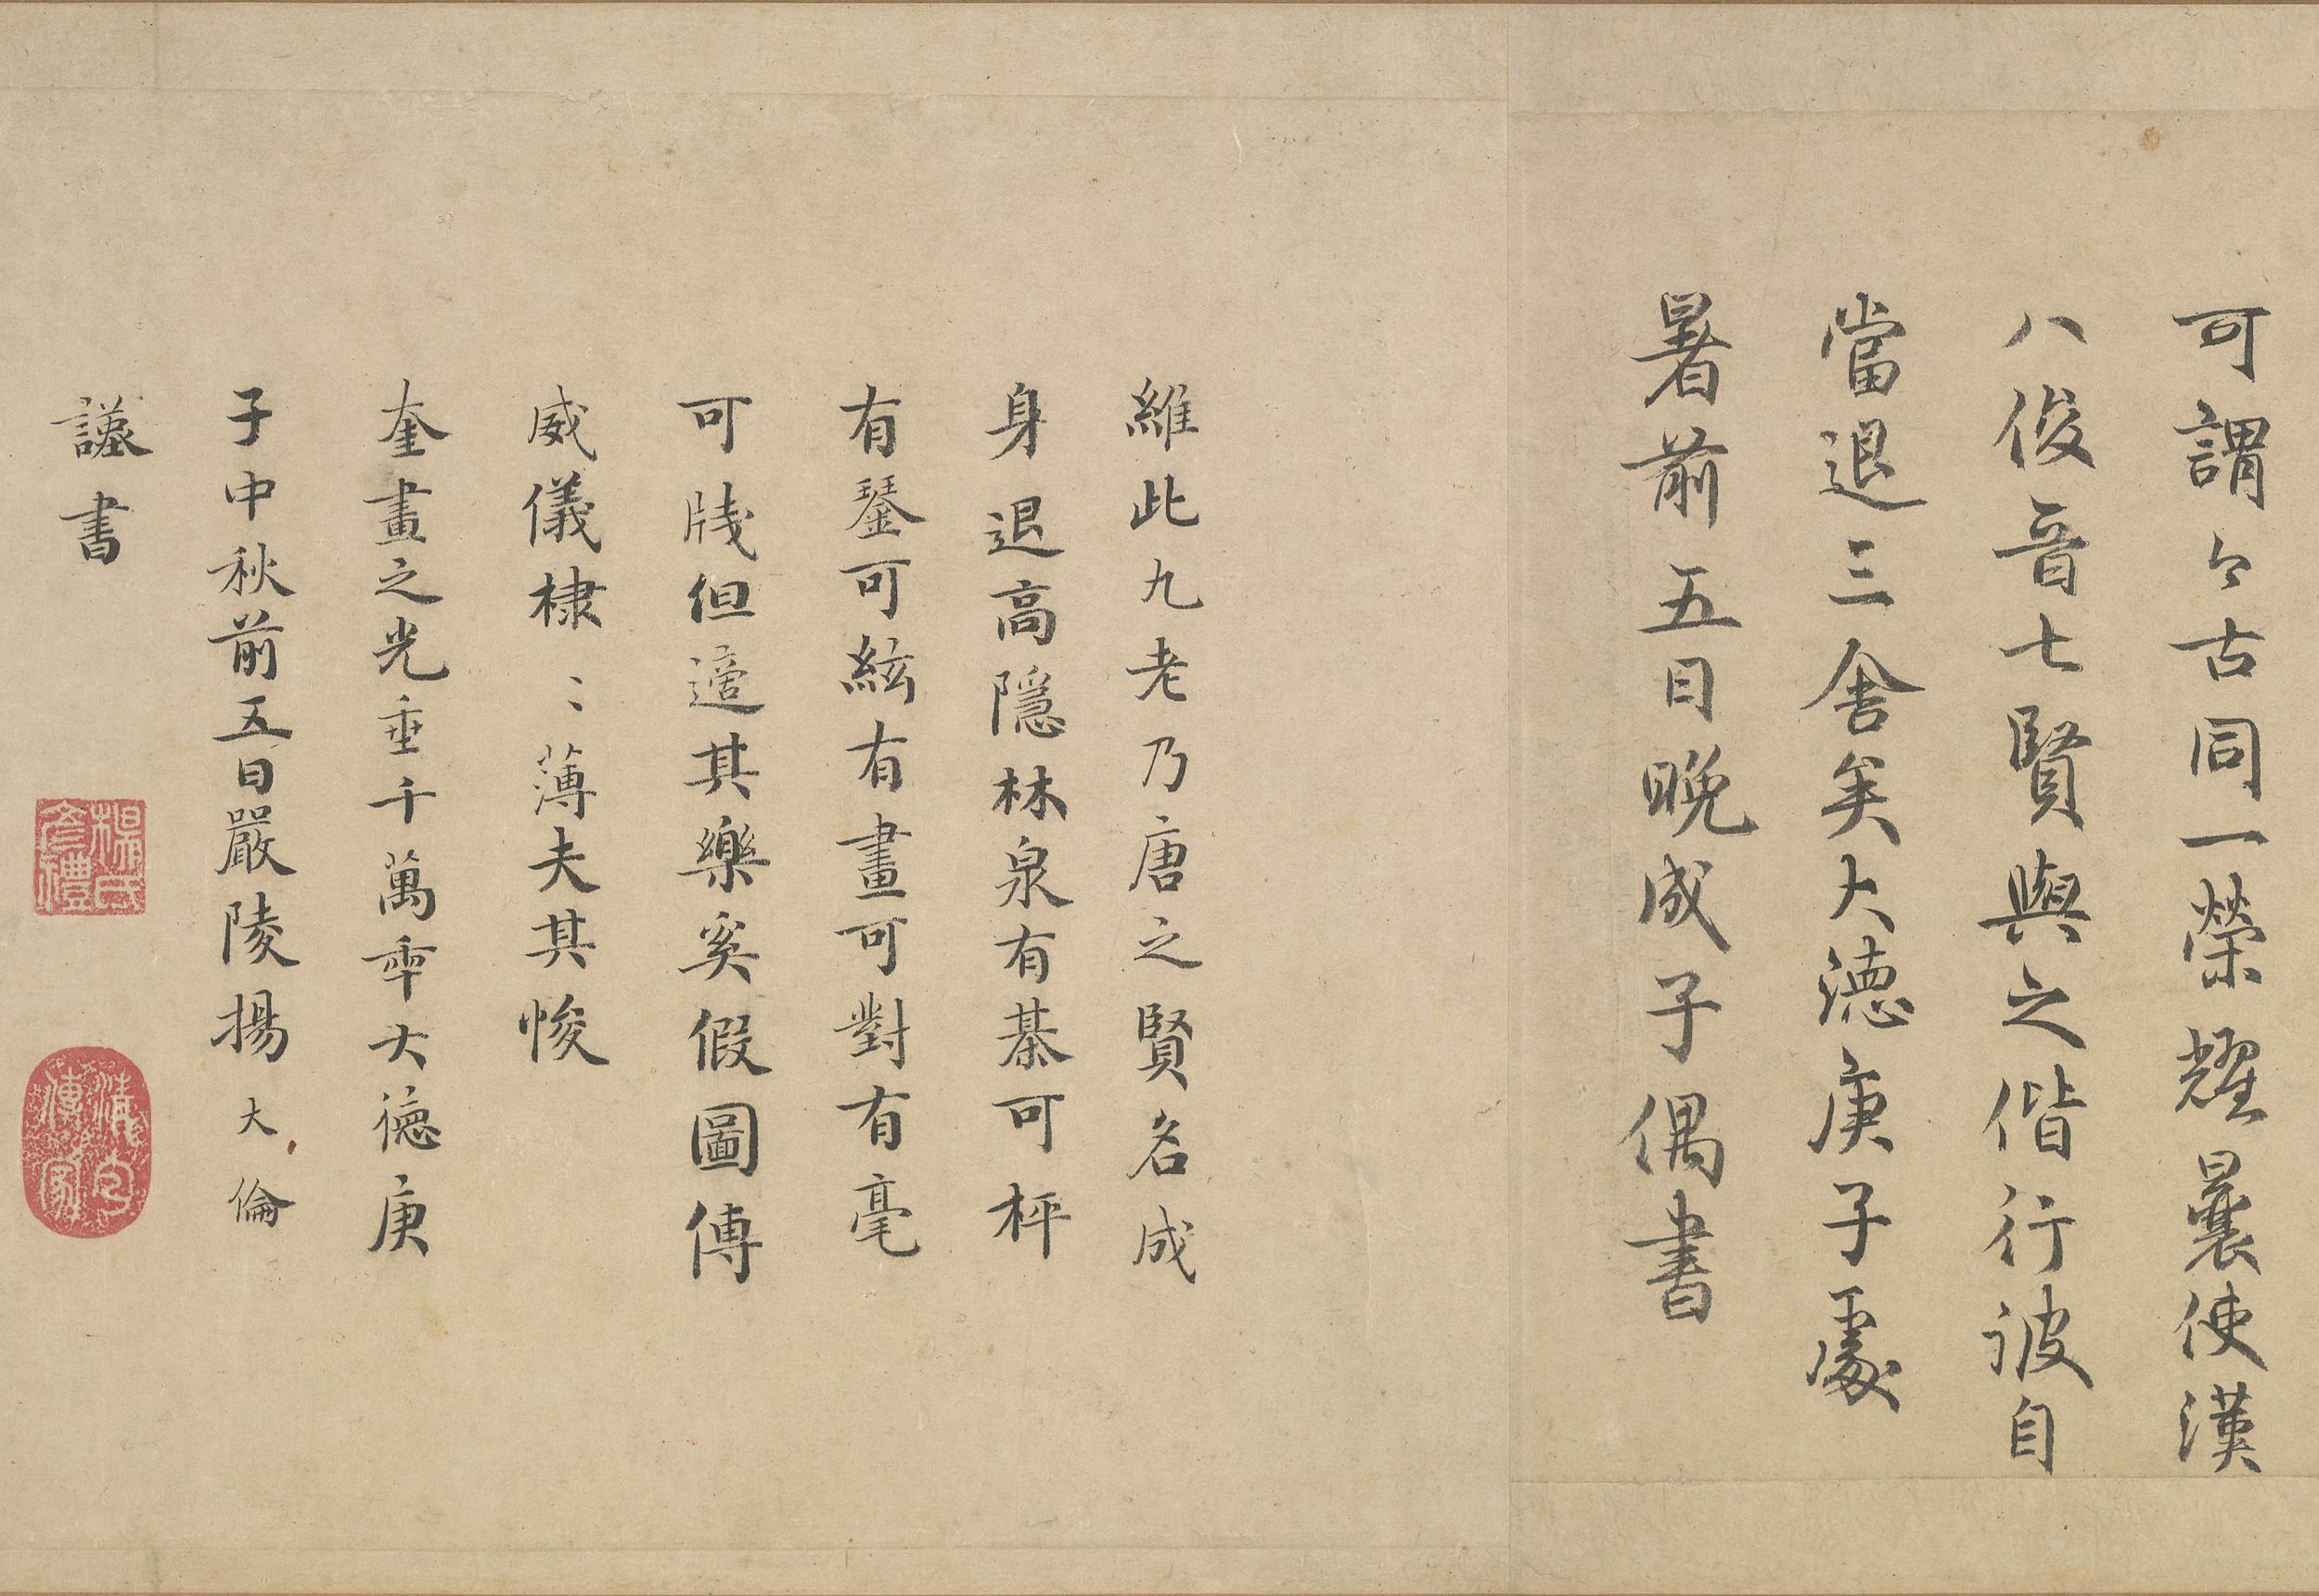 可謂今古同一榮耀曩使漢
八俊晉七賢與之偕行彼自
當退三舍矣大德庚子處
暑前五日晚成子偶書
維此九老乃唐之賢名成
身退高隱林泉有棊可枰
有琴可絃有畫可對有毫
可牋但適其樂奚假圖傳
威儀棣〻薄夫其悛
奎畫之光垂千萬年大德庚
子中秋前五日嚴陵揚大倫
謹書
楊氏彥禮
清白傳家